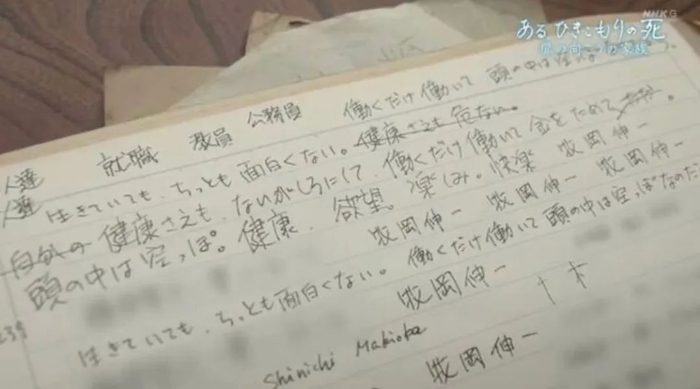 NHKG
ある ひきこもりの死
扉の向こうの家族
人達 就職 教員 公務員 働くだけ働いて 頭の中は空
人達 生きていても、ちっとも面白くない。健康さえも危ない。
自分の健康さえも、ないがしろにして、働くだけ働いて金をためて
頭の中は空っぽ。健康、欲望。楽しみ。快楽 牧岡伸一 牧岡伸一
牧岡伸一 牧岡伸一 牧岡伸一
生きていても、ちっとも面白くない。働くだけ働いて頭の中は空っぽなのだ
Shinichi Makioka 牧岡伸一
牧岡伸一